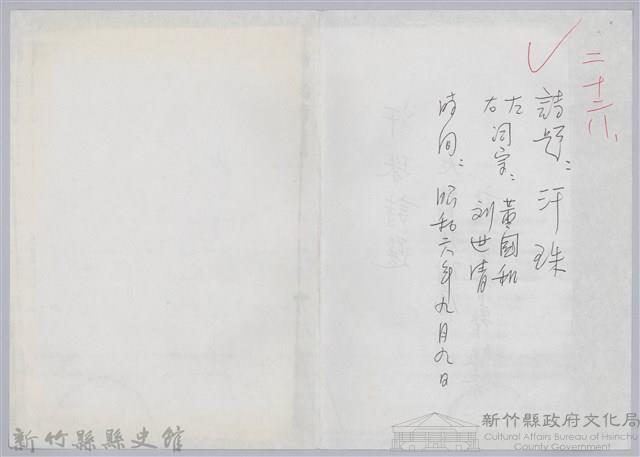 二十六、
詩題：汗珠
左右词宗：黄國和
刘世清
時间：昭和六年九月九日
汗珠
新竹縣縣史館
新竹縣政府文化局
Cultural Affairs Bureau of Hsinchu
County Government